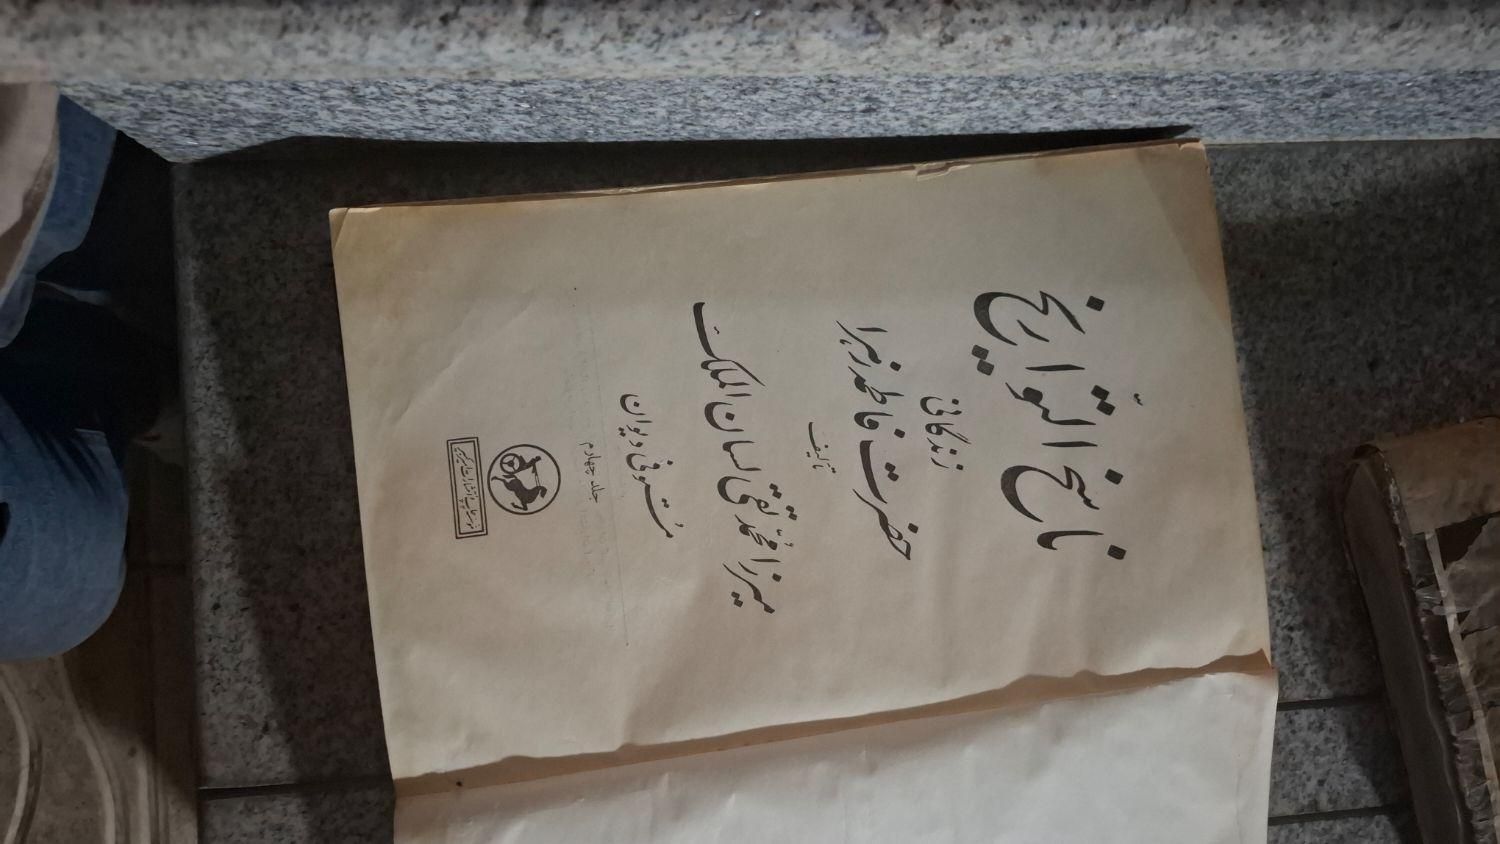 ناسخ التواریخ
زندگانی
حضرت فاطمه زهرا
تألیف
میرزا محمد تقی لسان الملک
مستوفی دیوان
جلد چهارم